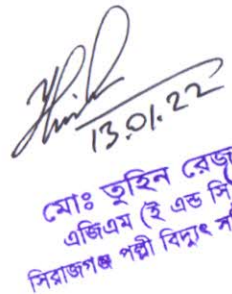 13.01.22
মোঃ তুহিন রেজ
এজিএম (ই এন্ড সি
সিরাজগঞ্জ পল্লী বিদ্যুৎ স